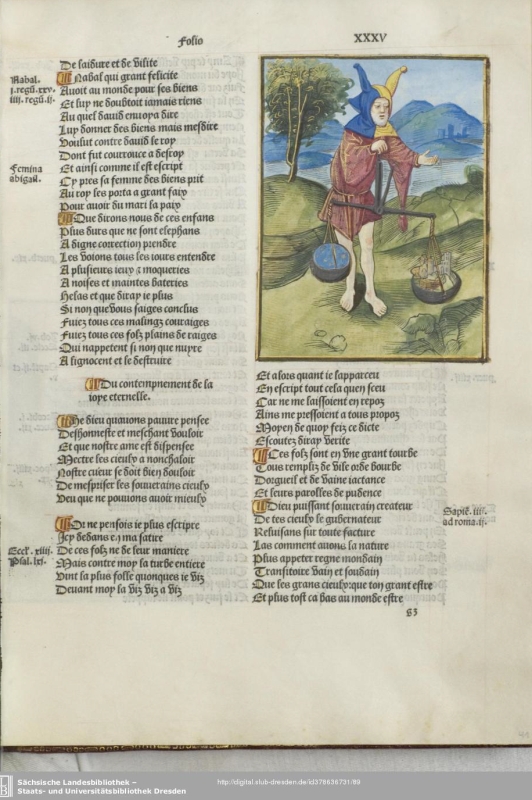 Folio
XXXV
De laidure et de vilite
Nabal.
i.regū.xxv.
iiii. regū.ij.
Nabal qui grant felicite
Auoit au monde pour ses biens
Et luy ne doubtoit iamais riens
Au quel dauid enuoya dire
Luy donner des biens mais mesdire
Voulut contre dauid le roy
Dont fut courrouce a desroy
Femina
abigail.
Et ainsi comme il est escript
Cy pres sa femme des biens prit
Au roy les porta a grant faiz
Pour auoir du mari la paiz
Que dirons nous de ces enfans
Plus durs que ne sont elephans
A digne correction prendre
Les voions tous les iours entendre
A plusieurs ieux & moqueries
A noises et maintes bateries
Helas et que diray ie plus
Si non que vous saiges conclus
Fuiez tous ces malingz couraiges
Fuiez tous ces folz plains de raiges
Qui nappetent si non que nuyre
A lignocent et le destruire
Du contempnement de la
ioye eternelle.
He dieu quauons pauure pensee
Deshonneste et meschant vouloir
Et que nostre ame est dispensee
Mectre les cieulx a nonchaloir
Nostre cueur se doit bien douloir
De mespriser les souuerains cieulx
Veu que ne pouuons auoir mieulx
Or ne pensois ie plus escripre
Icy dedans en ma satire
Eccl'. xliii.
Psal. lxi.
De ces folz ne de leur maniere
Mais contre moy la turbe entiere
Vint la plus folle quonques ie viz
Deuant moy la viz viz a viz
Et alors quant ie lapparceu
En escript tout cela quen sceu
Car ne me laissoient en repoz
Ains me pressoient a tous propoz
Moyen de quoy feiz ce dicte
Escoutez diray verite
Ces folz sont en vne grant tourbe
Tous rempliz de vile orde bourbe
Dorgueil et de vaine iactance
Et leurs parolles de pudence
Dieu puissant souuerain createur
De tes cieulx le gubernateur
Sapiē. iiii.
ad roma.ij.
Reluisans sur toute facture
Las comment auons la nature
Plus appeter regne mondain
Transitoire vain et soudain
Que les grans cieulx: que ton grant estre
Et plus tost ca bas au monde estre
g3
Sächsische Landesbibliothek –
Staats- und Universitätsbibliothek Dresden
http://digital.slub-dresden.de/id378636731/89